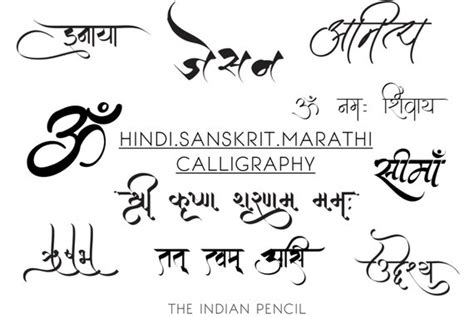 इनाया
जेसन
अनित्य
ॐ नमः शिवाय
ॐ
HINDI.SANSKRIT.MARATHI
CALLIGRAPHY
सीमाँ
श्री कृष्ण शरणम ममः
ऋषभ
तत् त्वम् असि
उद्देश्य
THE INDIAN PENCIL